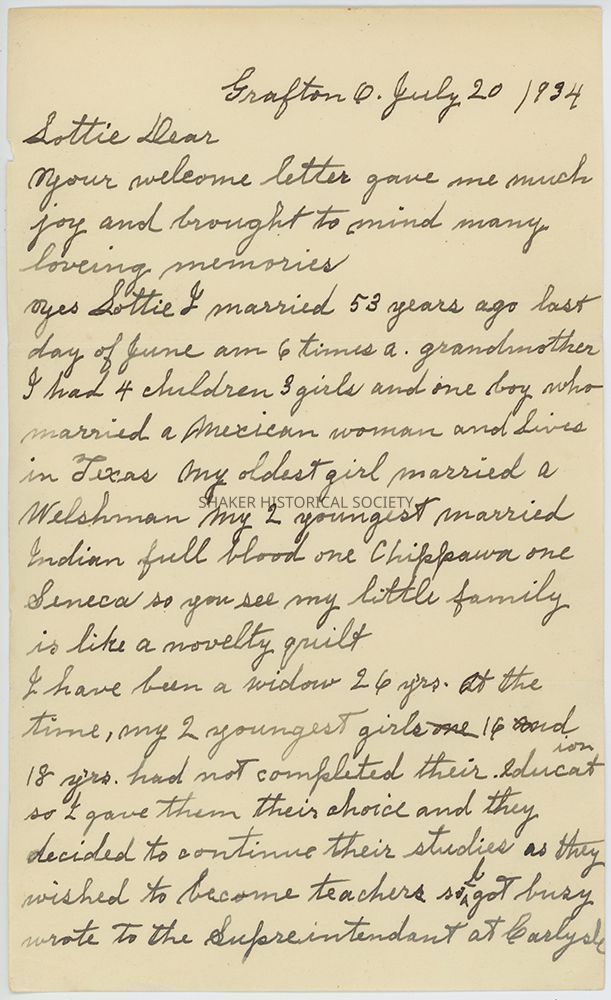 Grafton O. July 20 1934
Lottie Dear
Your welcome letter gave me much
joy and brought to mind many
loveing memories
Yes Lottie I married 53 years ago last
day of June am 6 times a. grandmother
I had 4 children 3 girls and one boy who
married a Mexican woman and Lives
in Texas My oldest girl married a
SHAKER HISTORICAL SOCIETY
Welshman My 2 youngest married
Indian full blood one Chippawa one
Seneca so you see my little family
is like a novelty quilt
I have been a widow 26 yrs. At the
time, my 2 youngest girls one 16 and
18 yrs. had not completed their Education
so I gave them their choice and they
decided to continue their studies as they
wished to become teachers so I got busy
wrote to the Supreintendant at Carlysle